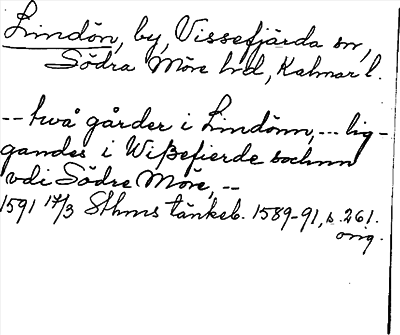 Lindön, by, Vissefjärda sn,
Södra Möre hd, Kalmar l.
-- två gårder i Lindönn, -- lig-
gandes i Wißefierde sochnn
vdi Södre Möre, --
1591 17/3 Sthms tänkeb. 1589-91, s. 261.
orig.